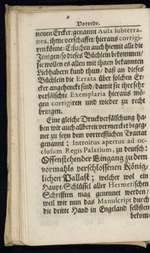 Vorrede.
neuen Ercker/ genannt Aula subterra-
nea, ihnen verschaffen/ hieraus corrigi-
ren könte. Ersuchen auch hiemit alle die
Jenigen/ so dieses Büchlein bekommen/
sie wollen es allen mit ihnen bekannten
Liebhabern kund thun/ daß an dieses
Büchlein die Errata über solchen Er-
cker angehenckt sind/ damit sie ihre sehr
verfälschte Exemplaria hieraus mö-
gen corrigiren und wieder zu recht
bringen.
Eine gleiche Druckverfälschung ha-
ben wir auch allbereit vermerckt begeg-
net zu seyn dem vortrefflichen Tractat
genannt: Introitus apertus ad oc-
clusum Regis Palatium, zu deutsch:
Offenstehender Eingang zu dem
vormahls verschlossenen König-
lichen Pallast; welcher wol ein
Haupt-Schlüssel aller Hermetischen
Schrifften mag genennet werden/
weil wir nun das Manuscript durch
die dritte Hand in Engeland selbsten
bekom-